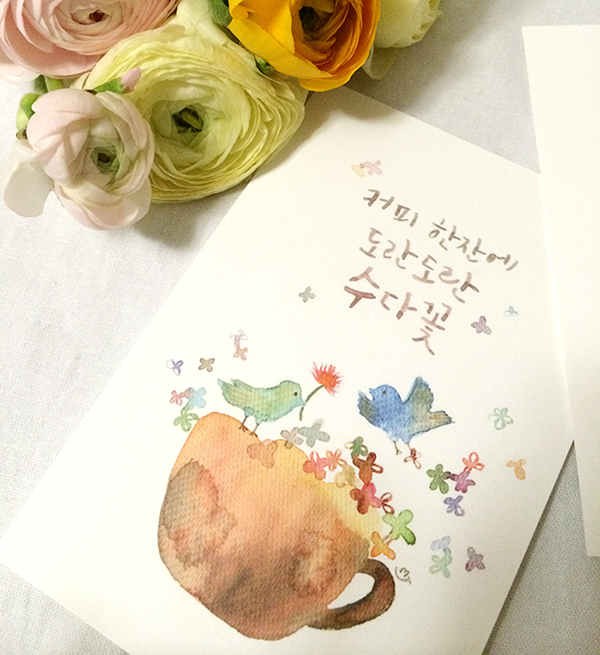 커피 한잔에
도란도란
수다꽃